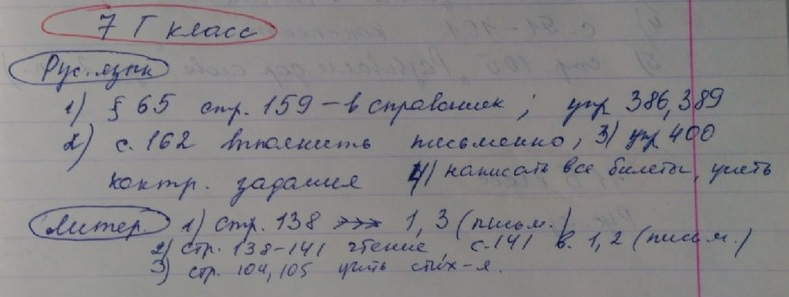 7 Г класс
Рус. язык
1) § 65 стр. 159 – в справочник; упр 386, 389
2) с. 162 выполнить письменно, 3) упр 400
контр. задания 4) написать все билеты, учить
Литер. 1) стр. 138 >>> 1, 3 (письм.)
2) стр. 138-141 чтение с. 141 в. 1, 2 (письм.)
3) стр. 104, 105 учить стих-я.